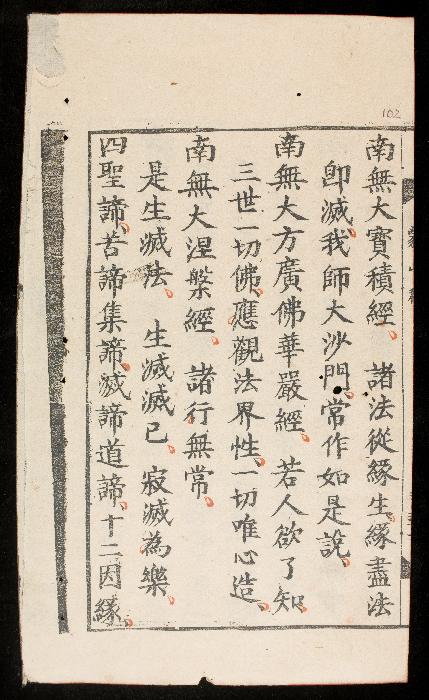 102
南無大寶積經、諸法從緣生、緣盡法
即滅、我師大沙門、常作如是說、
南無大方廣佛華嚴經、若人欲了知、
三世一切佛、應觀法界性、一切唯心造、
南無大涅槃經、諸行無常、
是生滅法、生滅滅已、寂滅為樂、
四聖諦、苦諦集諦、滅諦道諦、十二因緣、